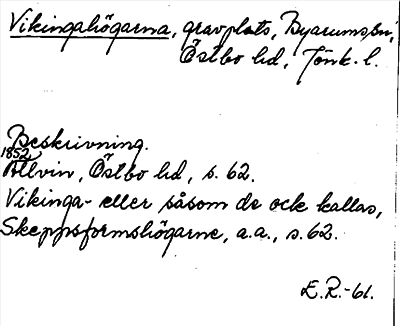 Vikingahögarna, gravplats, Byarums sn,
Östbo hd, Jönk. l.
Beskrivning.
1852
Allvin, Östbo hd, s. 62.
Vikinga- eller såsom de ock kallas,
Skeppsformshögarne, a.a., s. 62.
E.R.-61.